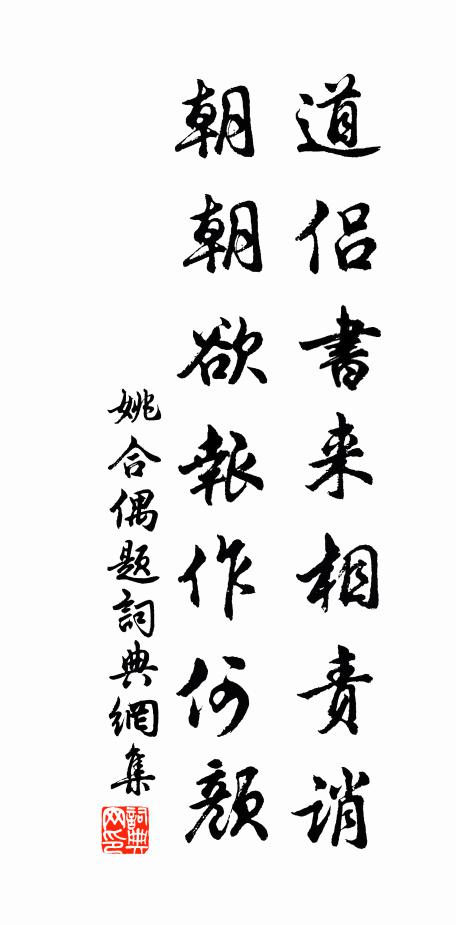 道侣書来相責誚
朝朝欲報作何顏
姚合偶题詞典網集
詞典网印